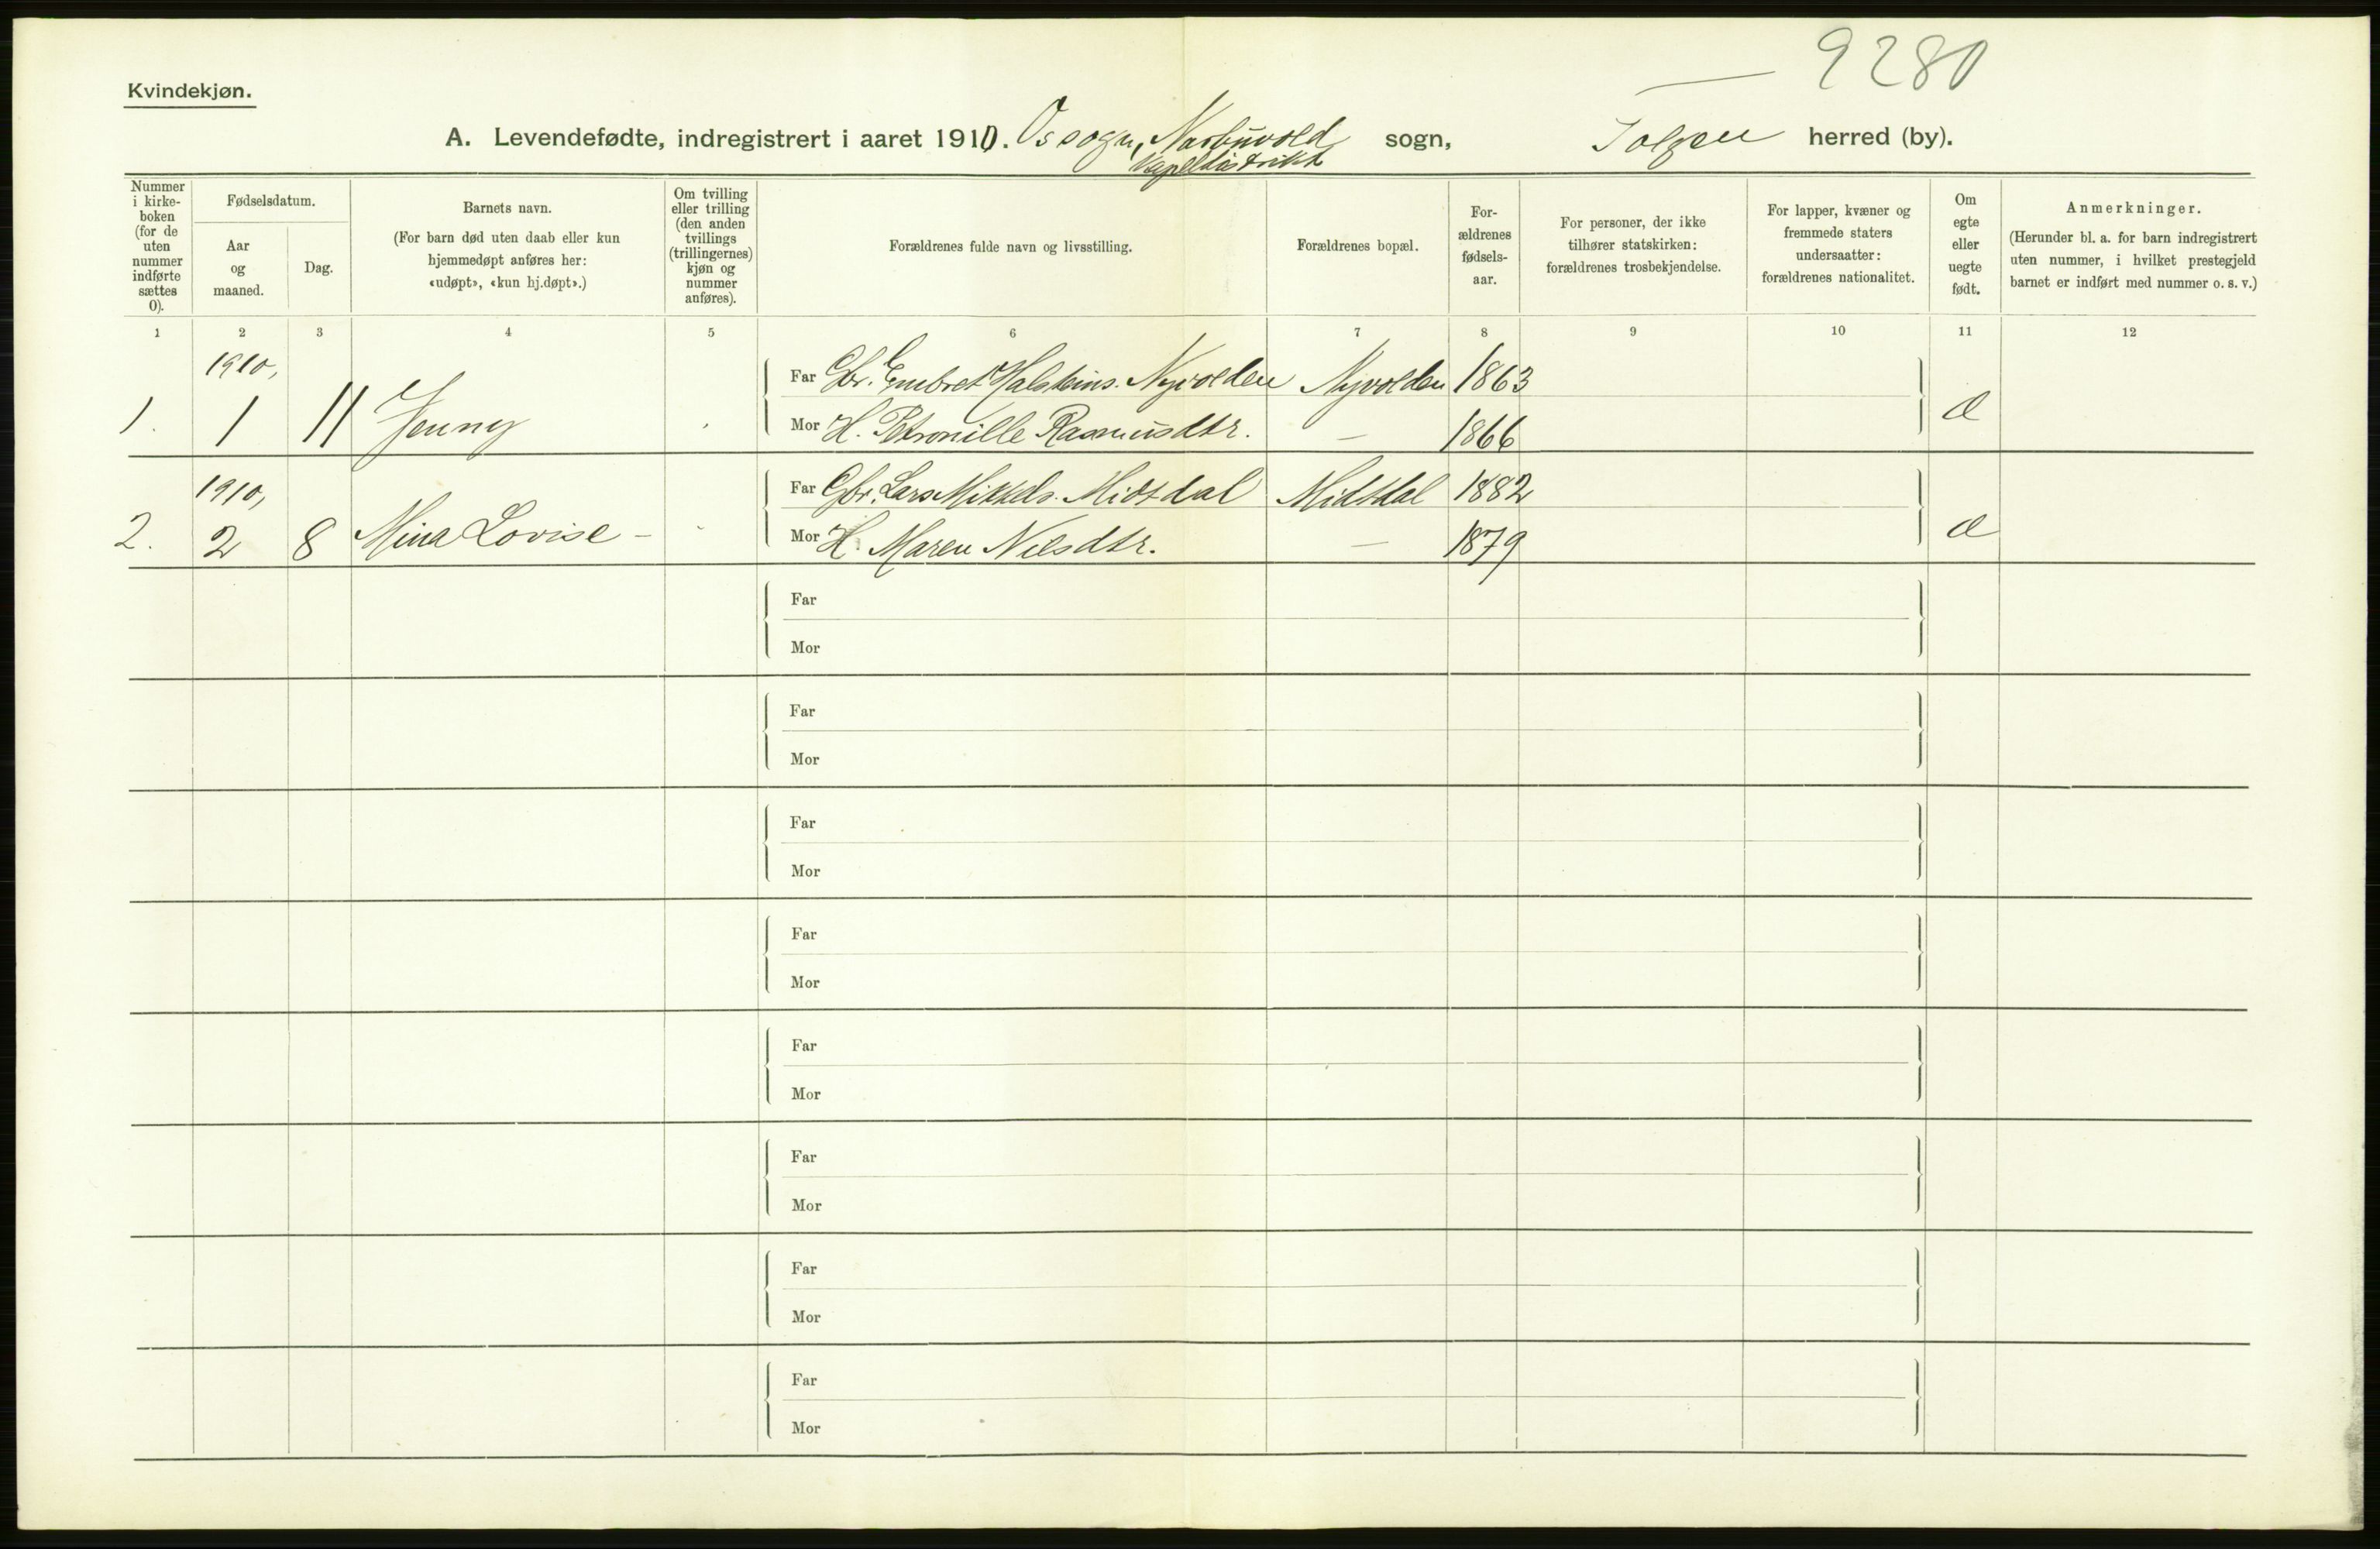 9280
Kvindekjøn.
A. Levendefødte, indregistrert i aaret 1910. Os sogn, Narbuvold sogn, Tolgen herred (by).
kapeldistrikt
Nummer i kirke-boken (for de uten nummer indførte sættes 0).
Fødselsdatum.
Aar og maaned.
Dag.
Barnets navn.
(For barn død uten daab eller kun hjemmedøpt anføres her: «udøpt», «kun hj.døpt».)
Om tvilling eller trilling (den anden tvillings (trillingernes) kjøn og nummer anføres).
Forældrenes fulde navn og livsstilling.
Forældrenes bopæl.
For-ældrenes fødsels-aar.
For personer, der ikke tilhører statskirken: forældrenes trosbekjendelse.
For lapper, kvæner og fremmede staters undersaatter: forældrenes nationalitet.
Om egte eller uegte født.
Anmerkninger.
(Herunder bl. a. for barn indregistrert uten nummer, i hvilket prestegjeld barnet er indført med nummer o. s. v.)
1 2 3 4 5 6 7 8 9 10 11 12
1910,
Far Gbr. Embret Halsteins. Nyvolden Nyvolden 1863
1. 1 11 Jenny
Mor H. Petronille Rasmusdtr. — 1866
1910,
Far Gbr. Lars Mikkels. Midtdal Midtdal 1882
2. 2 8 Mina Lovise -
Mor H. Maren Nilsdtr. — 1879
Far
Mor
Far
Mor
Far
Mor
Far
Mor
Far
Mor
Far
Mor
Far
Mor
Far
Mor